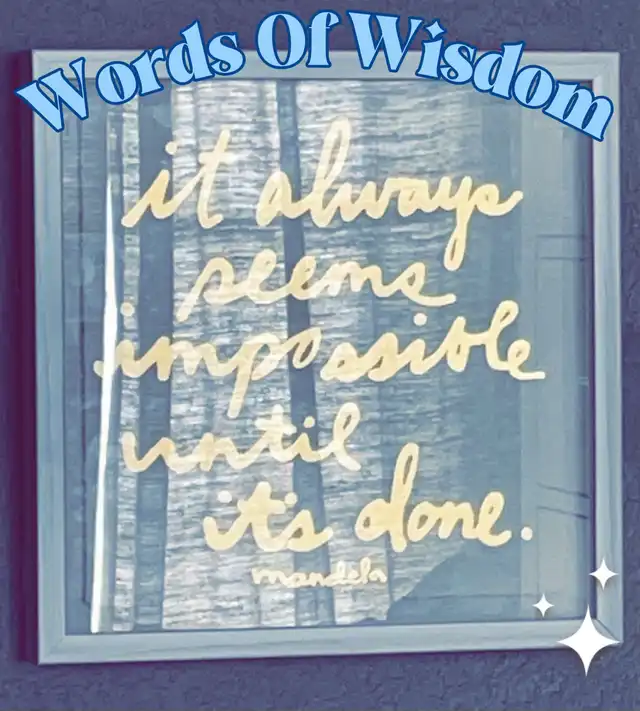 Words Of Wisdom
it always
seems
impossible
until
it's done.
mandela